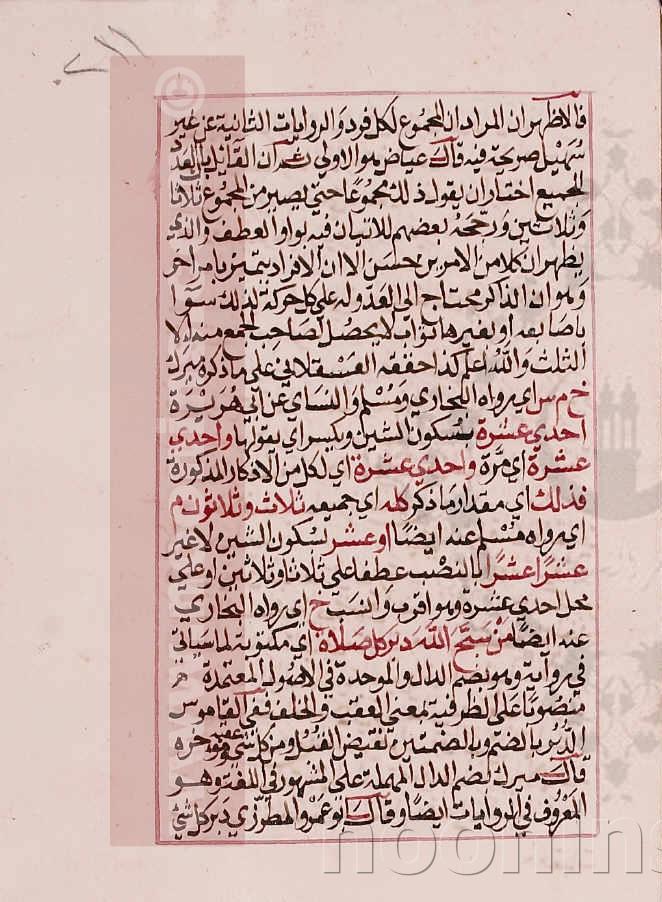 فالاظهر ان المراد ان المجموع لكل فرد والروايات الثانية عن غير
سهيل صريحة فيه قال عياض وهو الاولي ثم ان القائل بان العدد
للجميع اختار ان يقول ذلك مجموعا حتي يصير من المجموع ثلاثا
وثلاثين ورجحه بعضهم للاتيان فيه بواو العطف والذي
يظهر ان كلا من الامرين حسن الا ان الافراد يتميز بامر اخر
وهو ان الذاكر محتاج الي العدد وله علي كل حركة لذلك سوا
باصابعه او بغيرها ثواب لا يحصل لصاحب الجمع منه الا
الثلث والله اعلم كذا حققه العسقلاني علي ما ذكره ميرك
خ م س اي رواه البخاري ومسلم والنساي عن ابي هريرة
احدي عشرة بسكون الشين ويكسر اي يقولها واحدي
عشرة اي مرة واحدي عشرة اي لكل من الاذكار المذكورة
فذلك اي مقدار ما ذكر كله اي جميعه ثلاث وثلاثون م
اي رواه مسلم عنه ايضا او عشر بسكون الشين لا غير
عشرا عشرا بالنصب عطفا علي ثلاثا وثلاثين او علي
محل احدي عشرة وهو اقرب وانسب خ اي رواه البخاري
عنه ايضا من سبح الله دبر كل صلاة اي مكتوبة لما سياتي
في رواية وهو بضم الدال والموحدة في الاصول المعتمدة
منصوبا علي الظرفية بمعني العقب والخلف ففي القاموس
الدبر بالضم وبالضمتين نقيض القبل ومن كل شي عقبه وموخره
قال ميرك بضم الدال المهملة علي المشهور في اللغة وهو
المعروف في الروايات ايضا وقال ابو عمرو المطرزي دبر كل شئ
noorlins